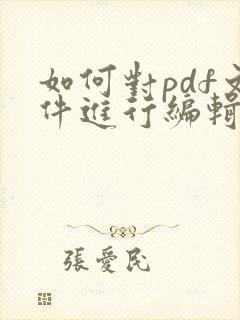 如何對pdf文
件進行編輯
張愛民